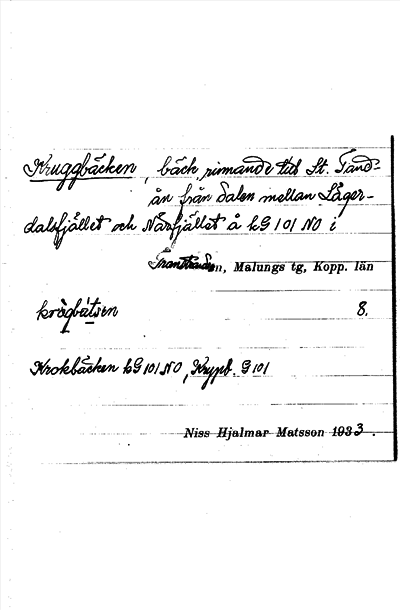 Kruggbäcken, bäck, rinnande till St. Tand-
ån från dalen mellan Låger-
dalsfjället och Närfjället å kG 101 NO i
Transtrand, Malungs tg, Kopp. län
8.
Krokbäcken kG 101 NO, Krypb. G 101
Niss Hjalmar Matsson 1933.